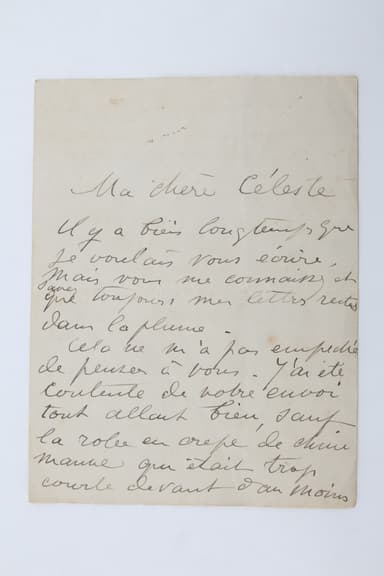 Ma chère Céleste
Il y a bien longtemps que
je voulais vous écrire,
Mais vous me connaissez et
savez
que toujours mes lettres restes
dans la plume.
Cela ne m'a pas empechée
de penser à vous. J'ai été
contente de votre envoi
tout allait bien, sauf
la robe en crepe de chine
mauve qui était trop
courte devant d'au moins